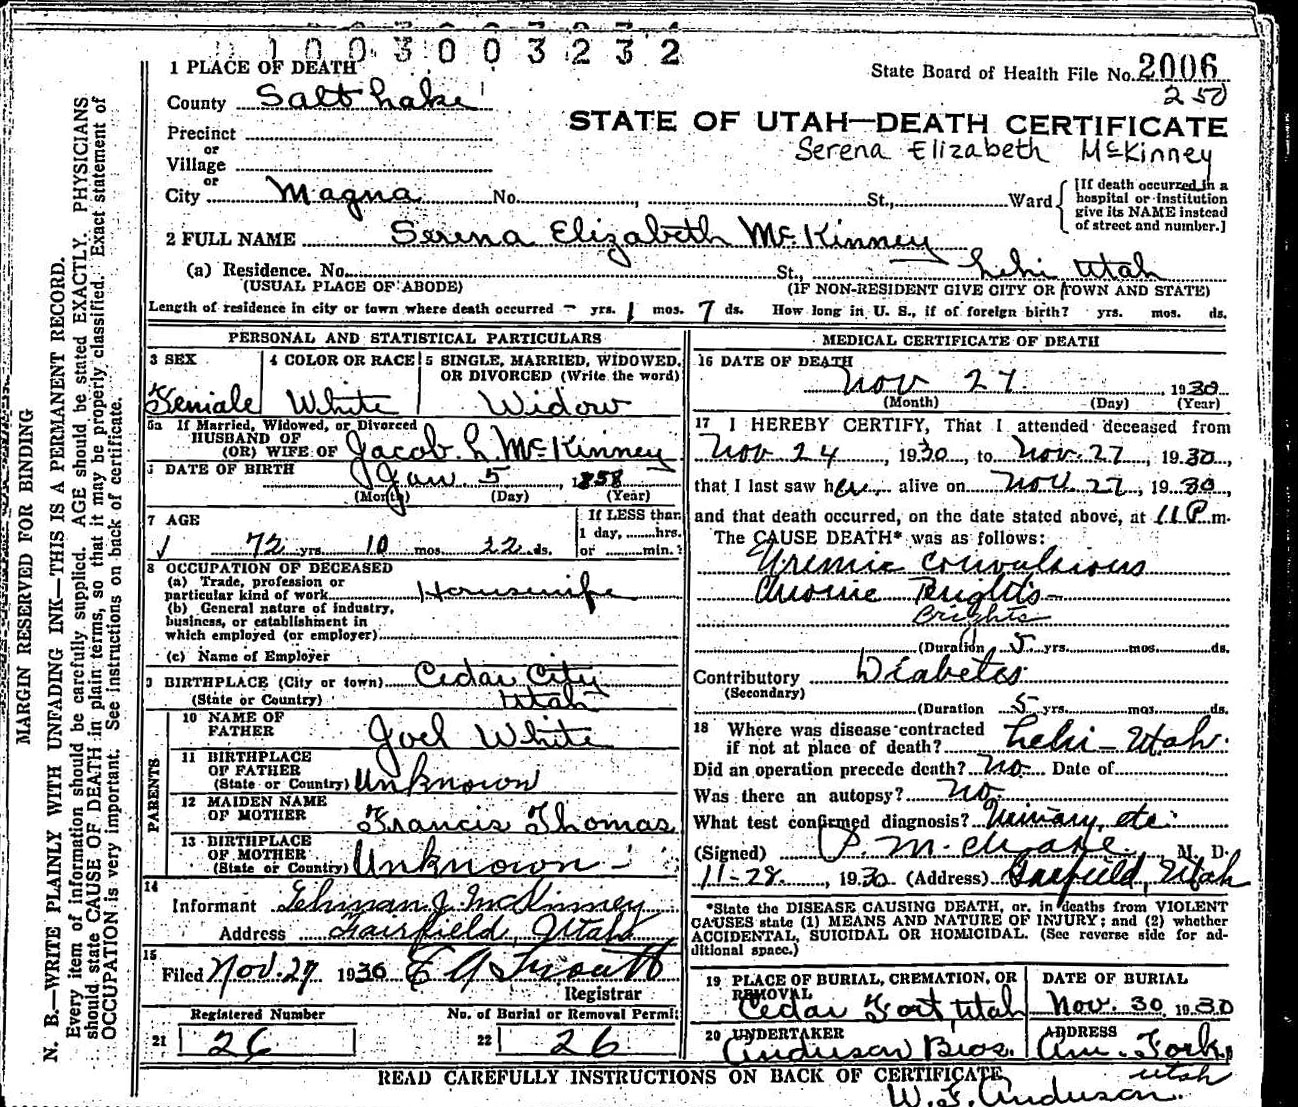 1003003232
1 PLACE OF DEATH
State Board of Health File No. 2006
250
County Salt Lake
STATE OF UTAH—DEATH CERTIFICATE
Precinct
Serena Elizabeth McKinney
or
Village
or
City Magna No. , St., Ward
[If death occurred in a
hospital or institution
give its NAME instead
of street and number.]
2 FULL NAME Serena Elizabeth McKinney
(a) Residence. No. St., Lehi Utah
(USUAL PLACE OF ABODE) (IF NON-RESIDENT GIVE CITY OR TOWN AND STATE)
Length of residence in city or town where death occurred - yrs. 1 mos. 7 ds. How long in U. S., if of foreign birth? yrs. mos. ds.
PERSONAL AND STATISTICAL PARTICULARS
3 SEX
Female
4 COLOR OR RACE
White
5 SINGLE, MARRIED, WIDOWED,
OR DIVORCED (Write the word)
Widow
5a If Married, Widowed, or Divorced
HUSBAND OF
(OR) WIFE OF Jacob L. McKinney
DATE OF BIRTH
Jan 5, 1858
(Month) (Day) (Year)
7 AGE
72 yrs. 10 mos. 22 ds.
If LESS than
1 day, hrs.
or min.?
8 OCCUPATION OF DECEASED
(a) Trade, profession or
particular kind of work Housewife
(b) General nature of industry,
business, or establishment in
which employed (or employer)
(c) Name of Employer
9 BIRTHPLACE (City or town) Cedar City
(State or Country) Utah
PARENTS
10 NAME OF
FATHER Joel White
11 BIRTHPLACE
OF FATHER
(State or Country) Unknown
12 MAIDEN NAME
OF MOTHER Francis Thomas
13 BIRTHPLACE
OF MOTHER
(State or Country) Unknown -
14
Informant J. McKinney
Address Fairfield, Utah
15
Filed Nov. 29 1930
Registrar
Registered Number
21 26
No. of Burial or Removal Permit
22 26
MEDICAL CERTIFICATE OF DEATH
16 DATE OF DEATH
Nov 27 1930
(Month) (Day) (Year)
17 I HEREBY CERTIFY, That I attended deceased from
Nov 24, 1930, to Nov. 27, 1930,
that I last saw her alive on Nov 27, 1930,
and that death occurred, on the date stated above, at 11 P. m.
The CAUSE DEATH* was as follows:
Uremic Convulsions
Chronic Brights
Brights
(Duration 5 yrs. mos. ds.
Contributory Diabetes
(Secondary)
(Duration 5 yrs. mos. ds.
18 Where was disease contracted
if not at place of death? Lehi - Utah.
Did an operation precede death? No Date of
Was there an autopsy? No
What test confirmed diagnosis? Urinary, etc.
(Signed) P. M. M. D.
11-28, 1930 (Address) Garfield, Utah
*State the DISEASE CAUSING DEATH, or, in deaths from VIOLENT
CAUSES state (1) MEANS AND NATURE OF INJURY; and (2) whether
ACCIDENTAL, SUICIDAL OR HOMICIDAL. (See reverse side for ad-
ditional space.)
19 PLACE OF BURIAL, CREMATION, OR
REMOVAL
Cedar Fort, Utah
DATE OF BURIAL
Nov. 30 1930
20 UNDERTAKER
Anderson Bros.
ADDRESS
Am. Fork,
Utah
READ CAREFULLY INSTRUCTIONS ON BACK OF CERTIFICATE
W. F. Anderson.
MARGIN RESERVED FOR BINDING
N. B.—WRITE PLAINLY WITH UNFADING INK—THIS IS A PERMANENT RECORD.
Every item of information should be carefully supplied. AGE should be stated EXACTLY. PHYSICIANS
should state CAUSE OF DEATH in plain terms, so that it may be properly classified. Exact statement of
OCCUPATION is very important. See instructions on back of certificate.